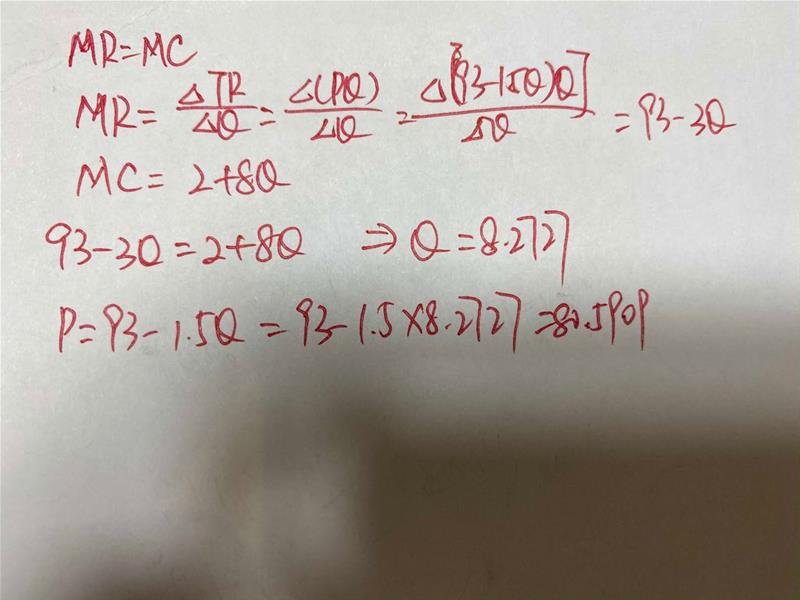 MR=MC
MR= ΔTR/ΔQ = Δ(PQ)/ΔQ = Δ[(93-1.5Q)Q]/ΔQ = 93-3Q
MC= 2+8Q
93-3Q=2+8Q ⇒ Q=8.2727
P=93-1.5Q = 93-1.5×8.2727=80.5909